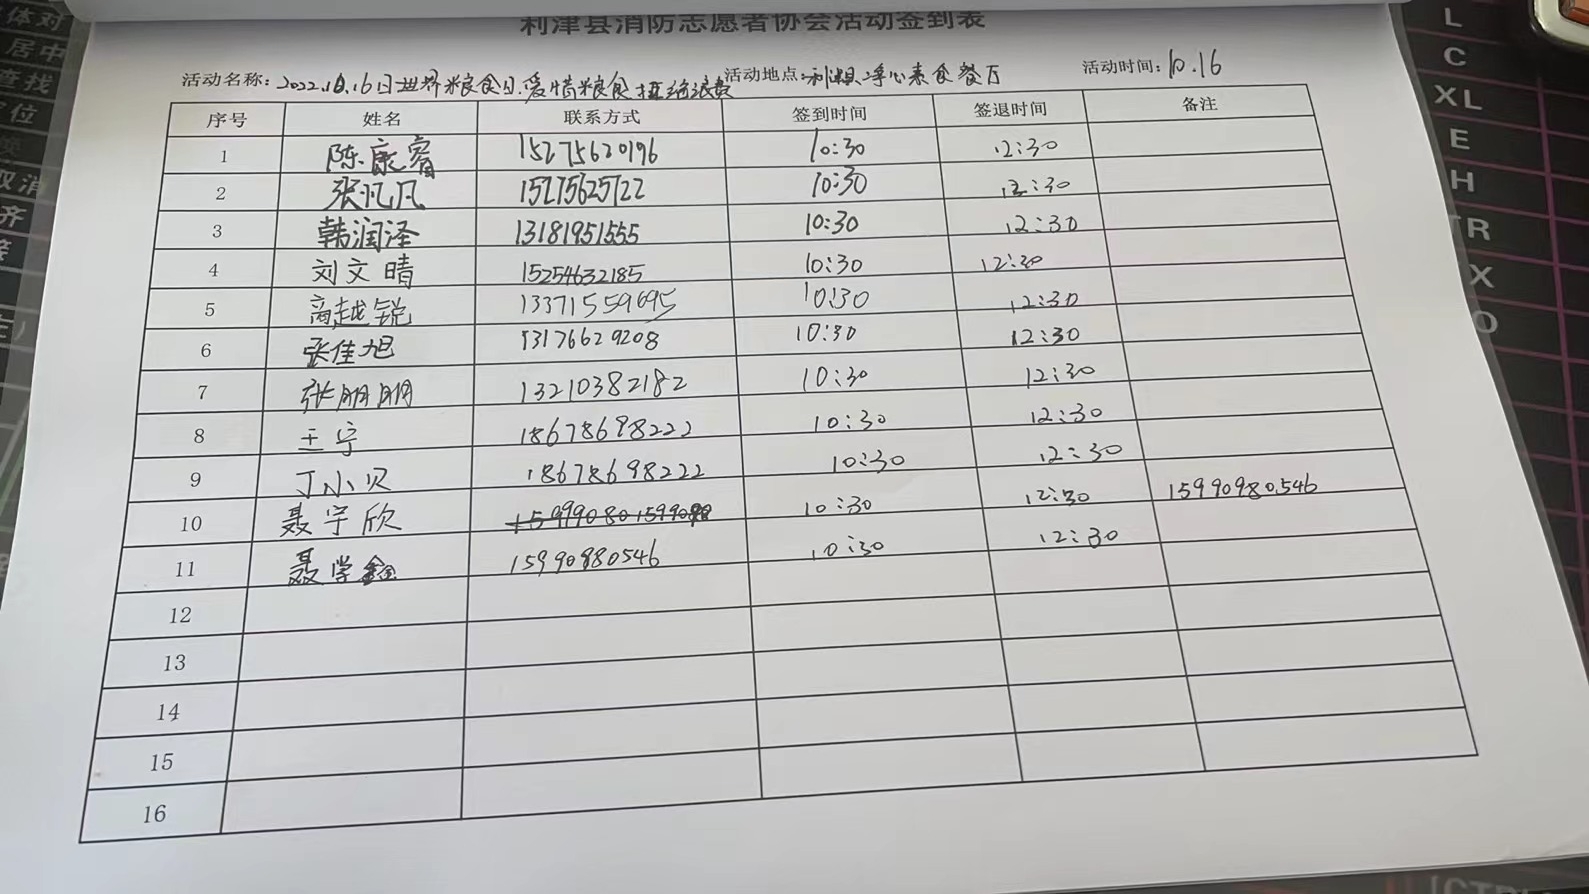 利津县消防志愿者协会活动签到表
活动名称：2022.10.16日世界粮食日.爱惜粮食拒绝浪费 活动地点：利津县净心素食餐厅 活动时间：10.16
序号 姓名 联系方式 签到时间 签退时间 备注
1 陈康睿 15275620196 10:30 12:30
2 张凡凡 15275625722 10:30 12:30
3 韩润泽 13181951555 10:30 12:30
4 刘文晴 15254632185 10:30 12:30
5 高越锐 13371559695 10:30 12:30
6 张佳旭 13176629208 10:30 12:30
7 张朋朋 13210382182 10:30 12:30
8 王宁 18678698222 10:30 12:30
9 丁小贝 18678698222 10:30 12:30
10 聂宇欣 10:30 12:30 15990980546
11 聂学鑫 15990880546 10:30 12:30
12
13
14
15
16
体对
居中
查找
定位
取消
齐
L
C
XL
E
H
TR
X
O